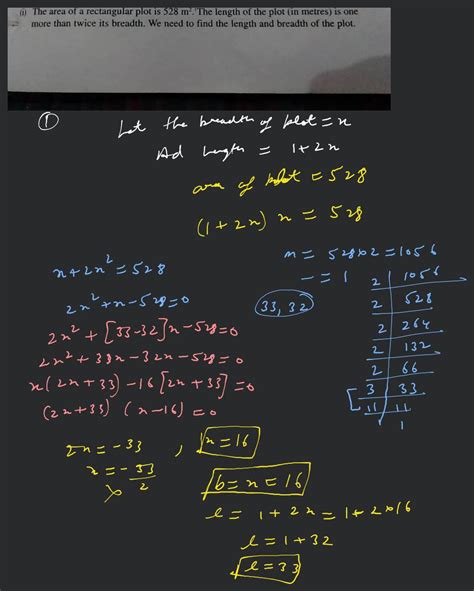 ii) The area of a rectangular plot is 528 m². The length of the plot (in metres) is one
more than twice its breadth. We need to find the length and breadth of the plot.
①
Let the breadth of plot = x
And length = 1+2x
area of plot = 528
(1+2x) x = 528
x+2x² = 528
2x²+x-528=0
2x² + [33-32]x-528=0
2x²+33x-32x-528=0
x(2x+33)-16[2x+33]=0
(2x+33) (x-16)=0
2x=-33 , x=16
x=-33/2
b=x=16
l= 1+2x=1+2×16
l=1+32
l=33
m= 528×2=1056
-=1
33,32
2 1056
2 528
2 264
2 132
2 66
3 33
11 11
1